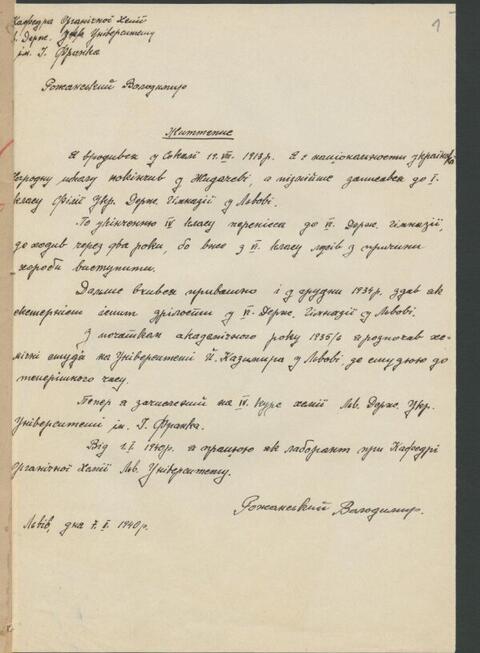 1
Кафедра Органічної Хемії
Держ. Укр. Університету
ім. І. Франка
Рожанський Володимир
Життєпис
Я вродився у Сокалі 19. VII. 1913 р. Я є національности українсь
Народну школу покінчив у Жидачеві, а пізнійше записався до I.
класу Філії Укр. Держ. Гімназії у Львові.
По укінченню IV класу перенісся до VI. Держ. Гімназії,
де ходив через два роки, бо вже з VI. класу мусів з причини
хороби виступити.
Дальше вчився приватно і у грудни 1934 р. здав як
екстерніст іспит зрілости у VI. Держ. Гімназії у Львові.
З початком академічного року 1935/6 я розпочав хе-
мічні студії на Університеті Й. Казимира у Львові, де студіюю до
теперішного часу.
Тепер я зачислений на IV. курс хемії Льв. Держ. Укр.
Університеті ім. І. Франка.
Від 1. I. 1940 р. я працюю як лаборант при Катедрі
Органічної Хемії Льв. Університету.
Рожанський Володимир.
Львів, дна 7. I. 1940 р.